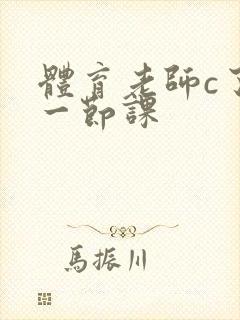 體育老師c了
一節課
馬振川